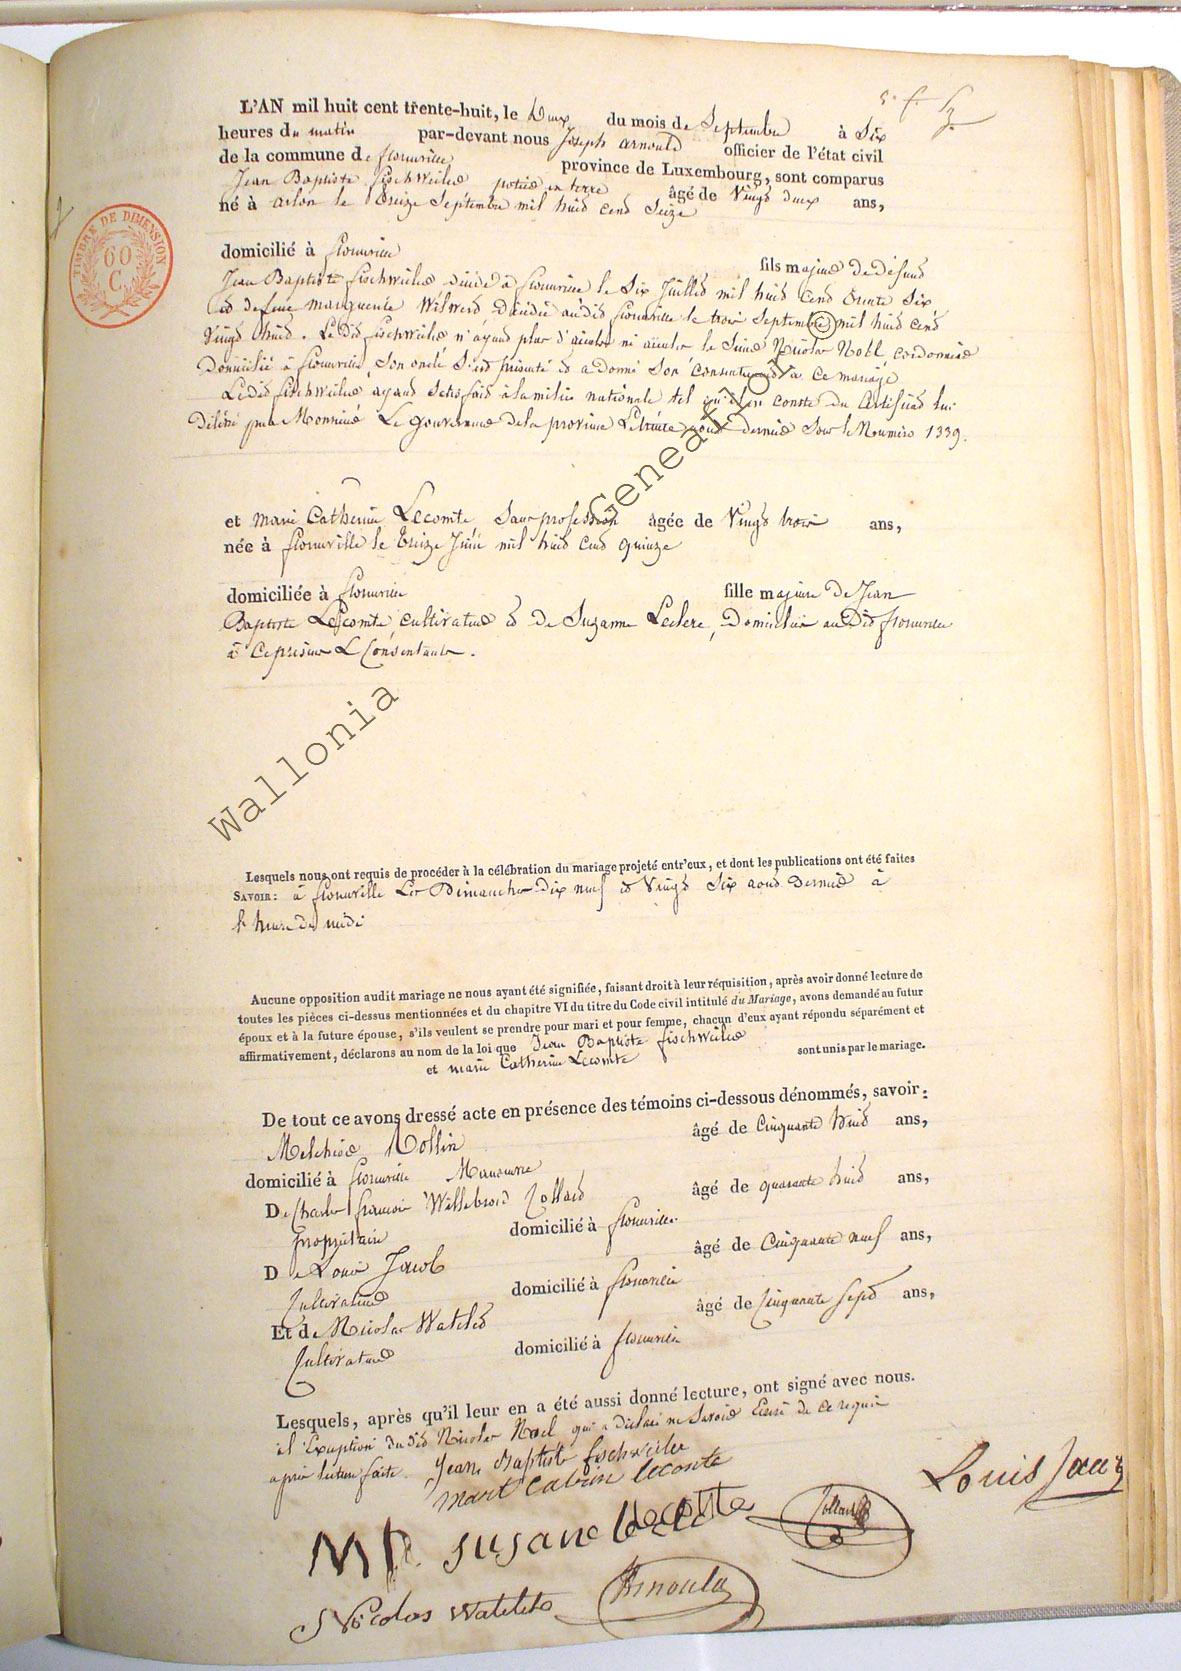 L'AN mil huit cent trente-huit, le Deux du mois de Septembre à Six
heures du matin par-devant nous Joseph Arnould officier de l'état civil
de la commune de florenville province de Luxembourg, sont comparus
Jean Baptiste fischweiler potier en terre âgé de Vingt deux ans,
né à arlon le treize Septembre mil huit cent Seize
TIMBRE DE DIMENSION
60
C.
domicilié à florenville fils majeur de défunt
Jean Baptiste fischweiler décédé à florenville le Six Juillet mil huit cent trente Six
et de feue marguerite Wilwert Décédée audit florenville le trois Septembre mil huit cent
Vingt huit. Ledit fischweiler n'ayant plus d'aïeules ni aïeules le Sieur Nicolas Noël cordonnier
Domicilié à florenville, Son oncle S'est présenté et a donné Son consentement à ce mariage
Ledit fischweiler ayant Satisfait à la milice nationale tel qu'il en conste du Certificat lui
Délivré par Monsieur Le gouverneur de la province Le trente août dernier Sous le Numéro 1339.
et marie Catherine Lecomte Sans profession âgée de Vingt trois ans,
née à florenville le treize Juin mil huit cent quinze
domiciliée à florenville fille majeure de Jean
Baptiste Lecomte, cultivateur et de Suzanne Leclere, Domiciliés audit florenville
à ce présens & Consentants.
Lesquels nous ont requis de procéder à la célébration du mariage projeté entr'eux, et dont les publications ont été faites
SAVOIR: à florenville Les Dimanches dix neuf et Vingt Six aout dernier à
l'heure de midi
Aucune opposition audit mariage ne nous ayant été signifiée, faisant droit à leur réquisition, après avoir donné lecture de
toutes les pièces ci-dessus mentionnées et du chapitre VI du titre du Code civil intitulé du Mariage, avons demandé au futur
époux et à la future épouse, s'ils veulent se prendre pour mari et pour femme, chacun d'eux ayant répondu séparément et
affirmativement, déclarons au nom de la loi que Jean Baptiste fischweiler
et marie Catherine Lecomte sont unis par le mariage.
De tout ce avons dressé acte en présence des témoins ci-dessous dénommés, savoir:
Melchior Rollin âgé de Cinquante huit ans,
domicilié à florenville Manoeuvre
De Charles françois Willebrord Collard âgé de quarante huit ans,
propriétaire domicilié à florenville
De Louis Jacob âgé de Cinquante neuf ans,
Cultivateur domicilié à florenville
Et de Nicolas Watelet âgé de Cinquante Sept ans,
Cultivateur domicilié à florenville
Lesquels, après qu'il leur en a été aussi donné lecture, ont signé avec nous.
à l'Exception dudit Nicolas Noël qui a déclaré ne Savoir Ecrire de ce requis
après lecture faite. Jean Baptiste fischweiler
mari Catrin lecomte
M R. susane leclere Collard Louis Jacob
Nicolas Watelets Arnould
Wallonia Geneaflor ©